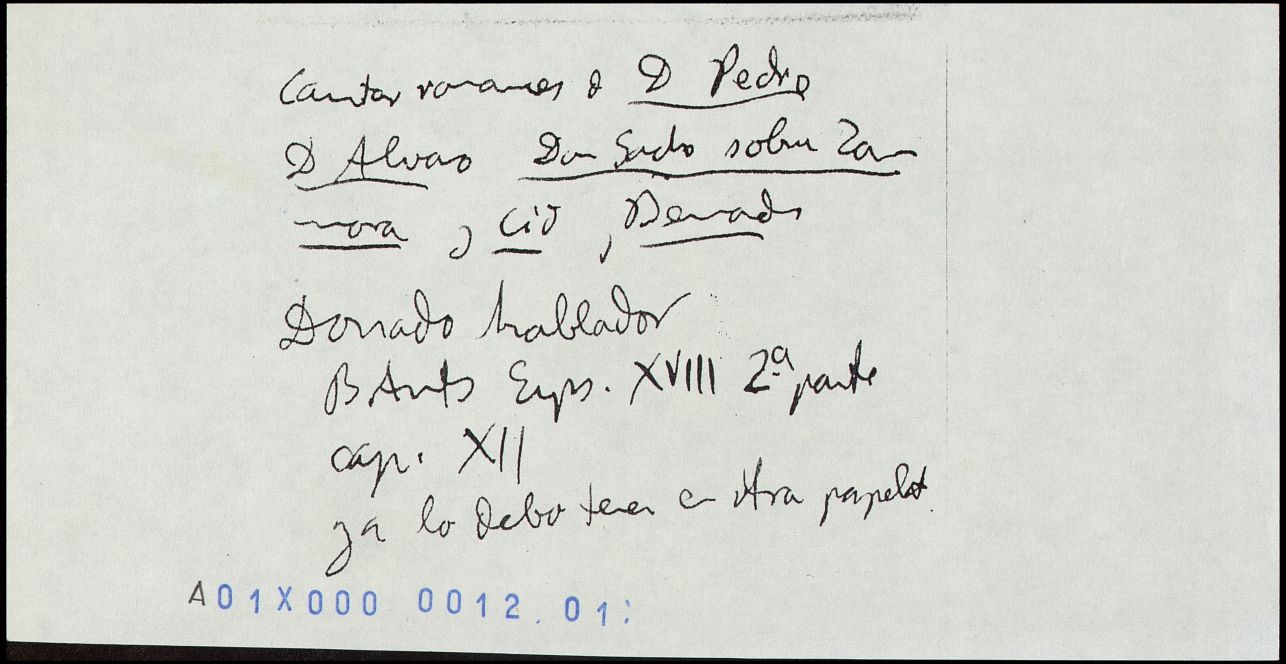 Cantar romances d D Pedro
D Alvaro Don Sancho sobre Za
mora, Cid, Bernado
Donado hablador
BAutEsps. XVIII 2ª parte
cap. XII
ya lo debo tener en otra papelet.
A01X000 0012.01: